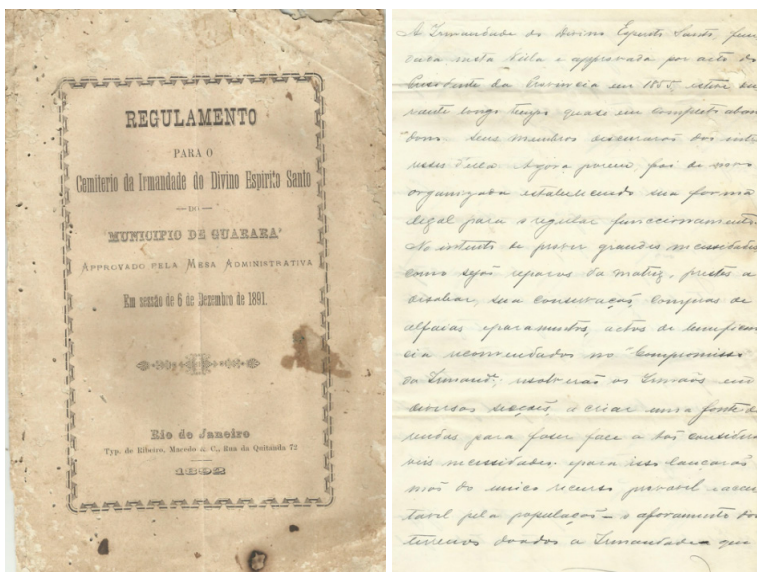 REGULAMENTO
PARA O
Cemiterio da Irmandade do Divino Espirito Santo
DO
MUNICIPIO DE GUARARÁ
APPROVADO PELA MESA ADMINISTRATIVA
Em sessão de 6 de Dezembro de 1891.
Rio de Janeiro
Typ. de Ribeiro, Macedo & C., Rua da Quitanda 72
1892
A Irmandade do Divino Espirito Santo, func
nesta Villa e approvada por acto do
Presidente da Provincia em 1855, esteve du
rante longo tempo quase em completo aban
dono. Seus membros descurarão dos inte
resses della. Agora porem, foi de novo
organizada estabelecendo sua forma
legal para o regular funccionamento.
No intento de prover grandes necessidades
como sejão reparos da matriz, prestes a
desabar, sua conservação, compras de
alfaias e paramentos, actos de beneficen
cia recomendados no "Compromisso
da Irmand.e, resolverão os Irmãos em
diversas secções, a criar uma fonte de
rendas para faser face a tão considera
veis necessidades. e para isso lançarão
mão do unico recurso provavel e accei
tavel pela população – o aforamento dos
terrenos doados a Irmandade e que